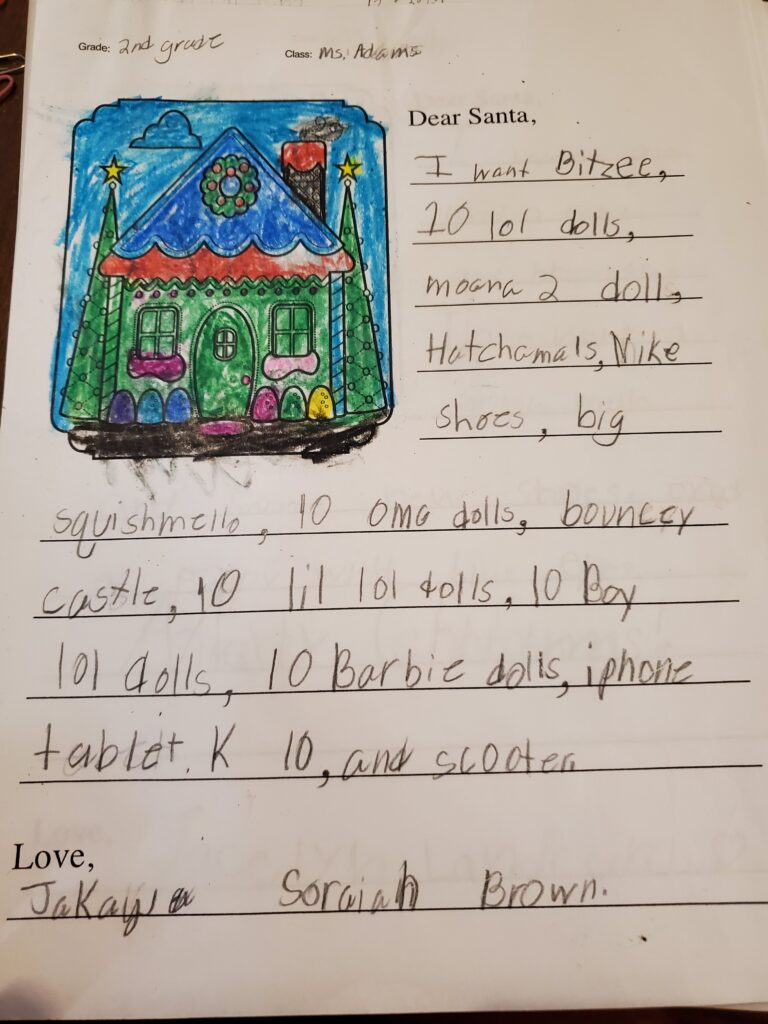 Grade: 2nd grade
Class: Ms. Adams
Dear Santa,
I want Bitzee,
10 lol dolls,
moana 2 doll,
Hatchamals, Nike
shoes, big
squishmello, 10 OMG dolls, bouncey
castle, 10 lil lol dolls, 10 Boy
lol dolls, 10 Barbie dolls, iphone
tablet, K 10, and scooter.
Love,
JaKayla Soraiah Brown.